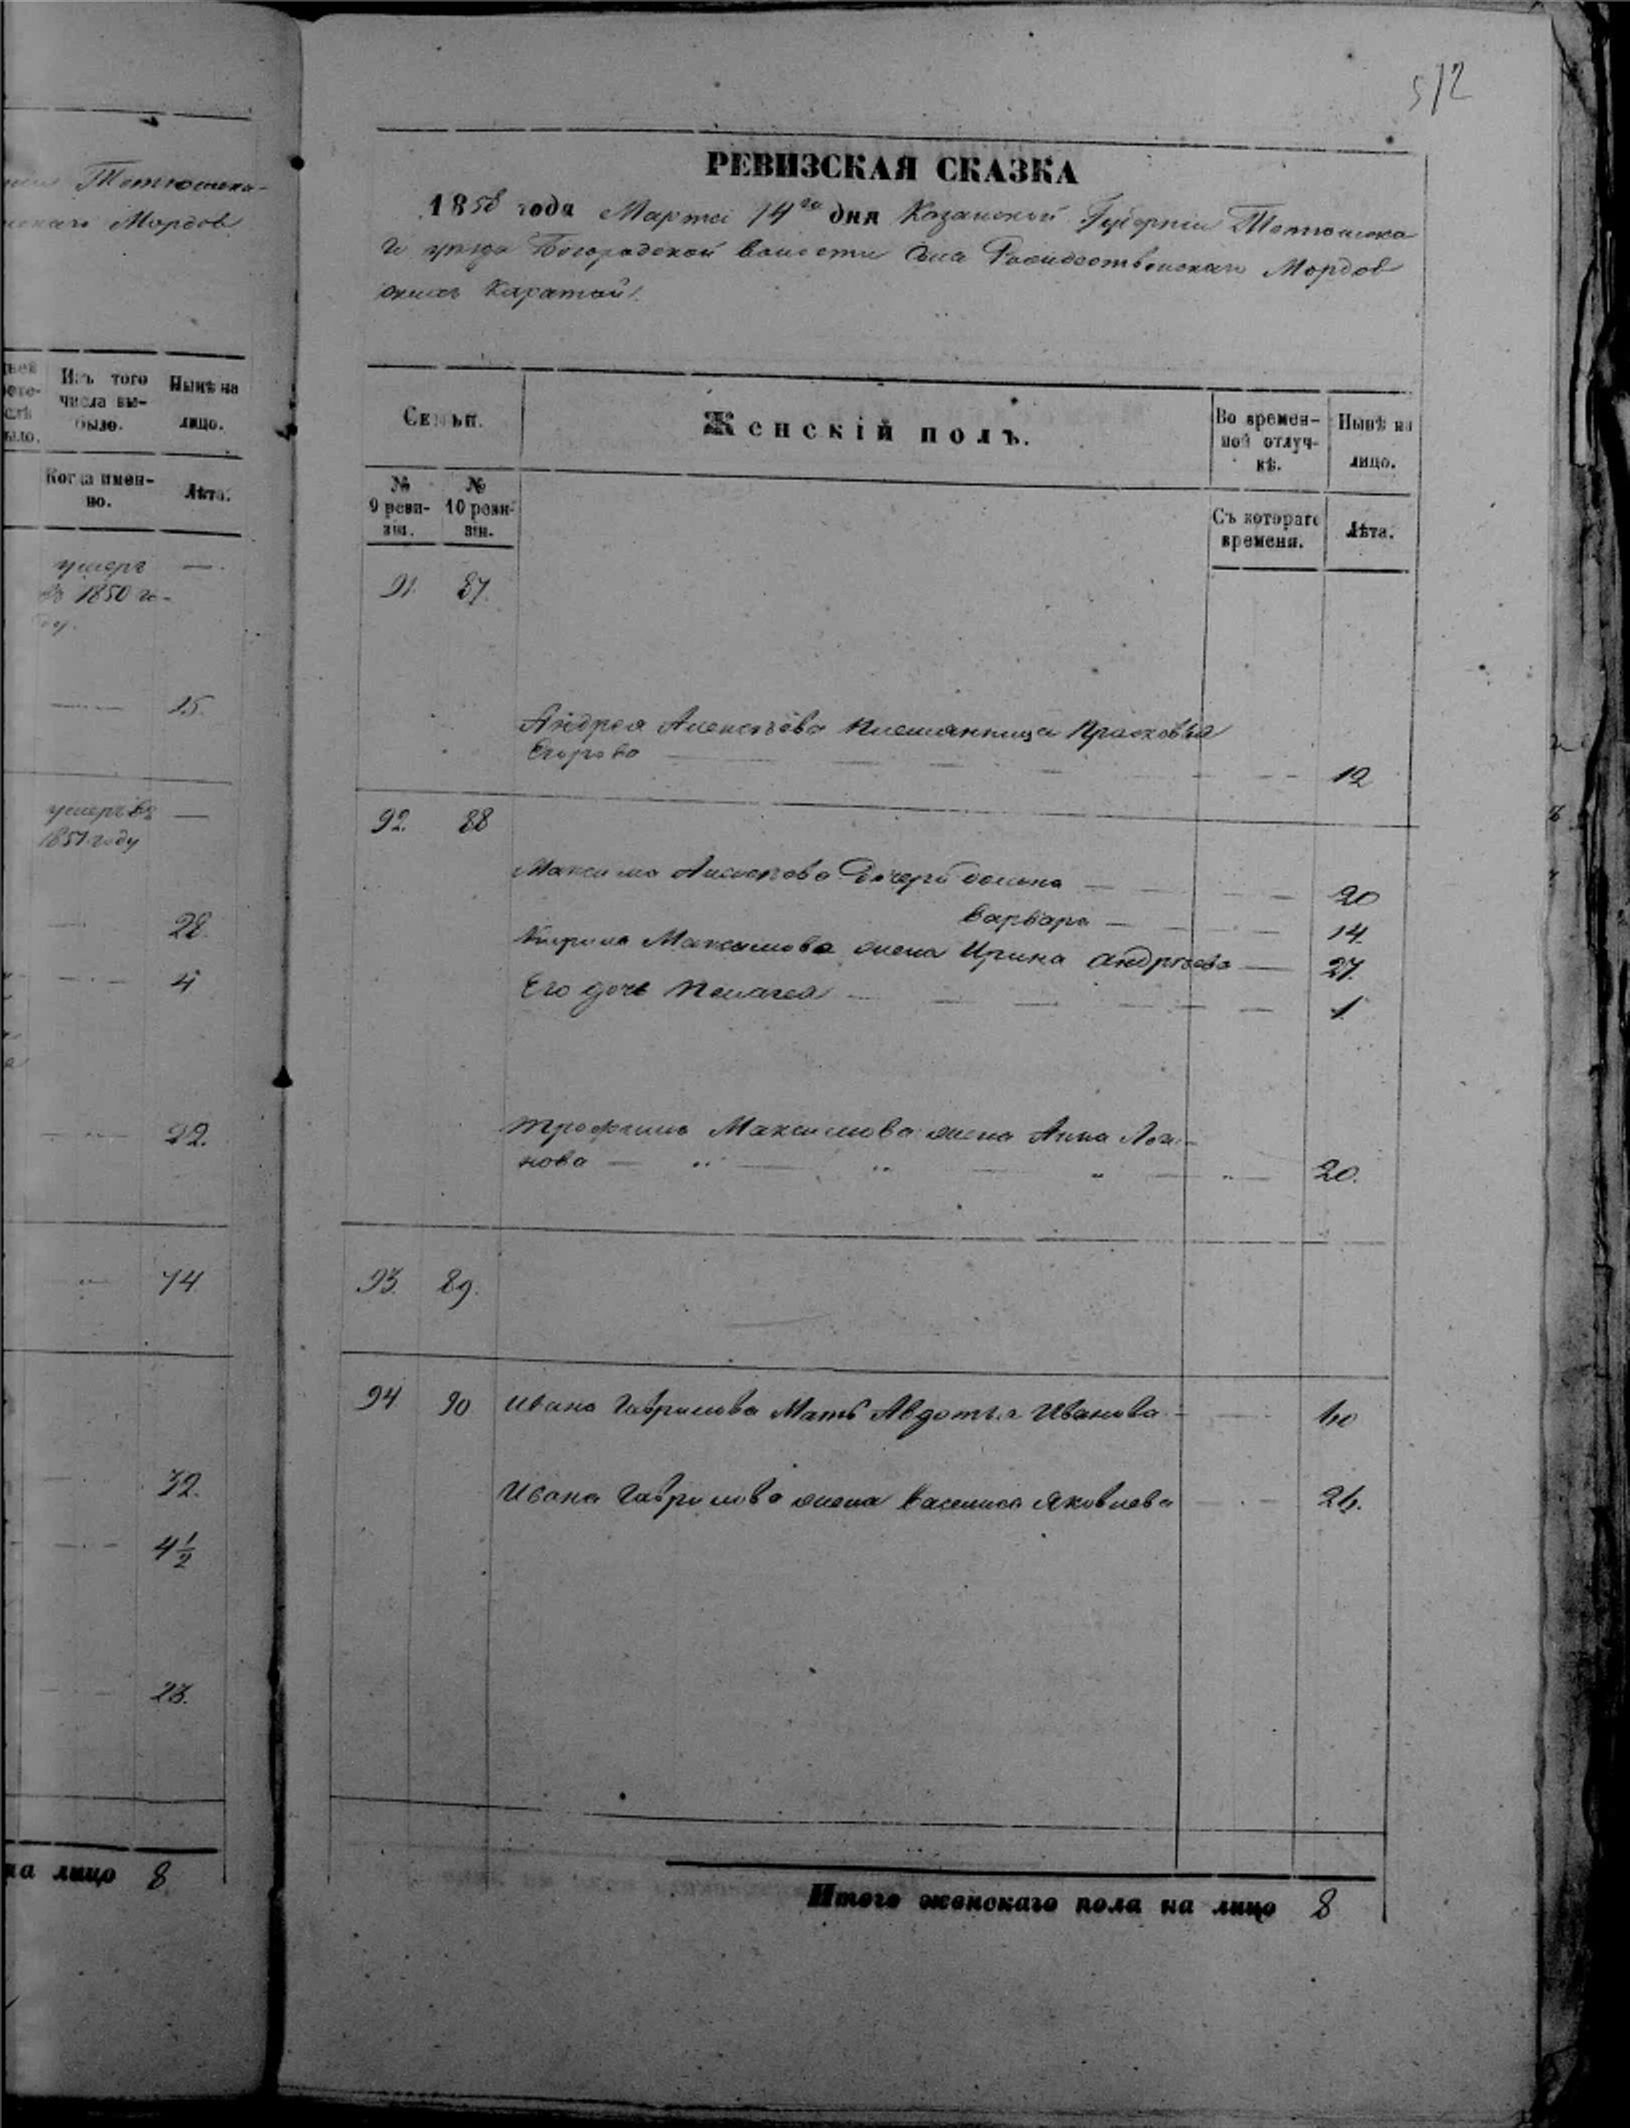 Тетюшска-
Мордов
Изъ того числа вы-
было.
Нынѣ на
лицо.
Когда имен-
но.
Лѣта.
умеръ —
въ 1850 го-
ду.
15.
умеръ въ —
1851 году
28.
4
22.
74
32.
4 1/2
23.
на лицо 8
512
РЕВИЗСКАЯ СКАЗКА
1858 года Марта 14го дня Казанской Губерніи Тетюшска
го уѣзда Богородской волости Села Рождественскаго Мордов
скихъ Каратай.
Семьи.
Женскій полъ.
Во времен-
ной отлуч-
кѣ.
Нынѣ на
лицо.
№
9 реви-
зіи.
№
10 реви-
зіи.
Съ котораго
времени.
Лѣта.
91. 87.
Андрея Алексѣева племянница Прасковья
Егорова — 12
92. 88
Максима Алексѣева дочери — 20
Варвара — 14.
Максимова жена Ирина Андрѣева — 27.
Его дочь Пелагея — 1
Трофима Максимова жена Анна Логи-
нова — 20.
93. 89.
94 90 Ивана Гаврилова Мать Авдотья Иванова — 60
Ивана Гаврилова жена Васи­лиса Яковлева — 26.
Итого женскаго пола на лицо 8